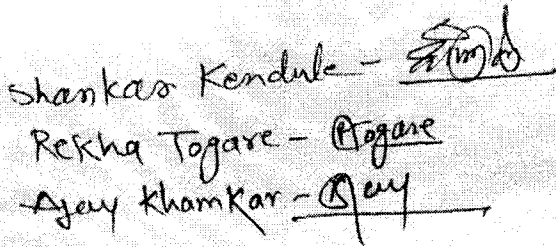 Shankar Kendule -
Rekha Togare - Rtogare
Ajay Khamkar - Ajay